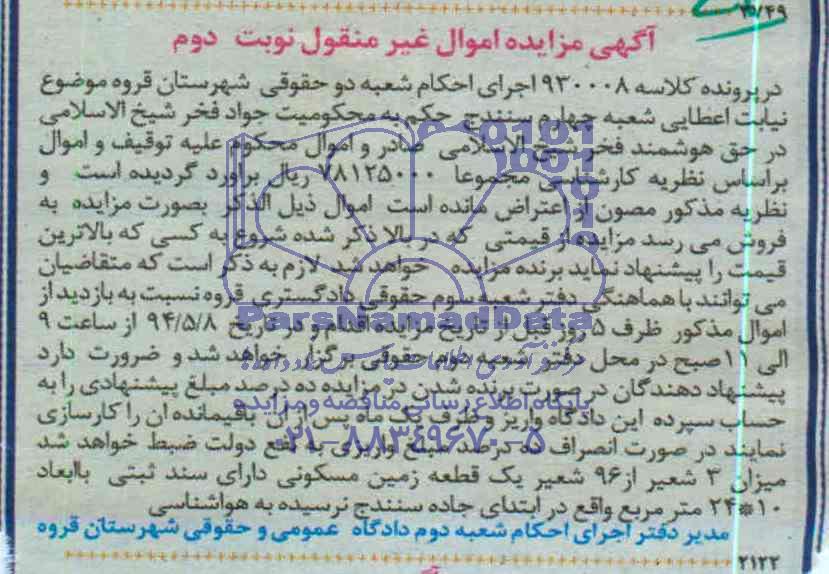 ۳۵/۴۹
آگهی مزایده اموال غیر منقول نوبت دوم
در پرونده کلاسه ۹۳۰۰۰۸ اجرای احکام شعبه دو حقوقی شهرستان قروه موضوع
نیابت اعطایی شعبه چهارم سنندج حکم به محکومیت جواد فخر شیخ الاسلامی
در حق هوشمند فخر شیخ الاسلامی صادر و اموال محکوم علیه توقیف و اموال
براساس نظریه کارشناسی مجموعا ۷۸۱۲۵۰۰۰ ریال براورد گردیده است و
نظریه مذکور مصون از اعتراض مانده است اموال ذیل الذکر بصورت مزایده به
فروش می رسد مزایده از قیمتی که در بالا ذکر شده شروع به کسی که بالاترین
قیمت را پیشنهاد نماید برنده مزایده خواهد شد لازم به ذکر است که متقاضیان
می توانند با هماهنگی دفتر شعبه سوم حقوقی دادگستری قروه نسبت به بازدید از
اموال مذکور ظرف ۵ روز قبل از تاریخ مزایده اقدام و در تاریخ ۹۴/۵/۸ از ساعت ۹
الی ۱۱ صبح در محل دفتر شعبه دوم حقوقی برگزار خواهد شد و ضرورت دارد
پیشنهاد دهندگان در صورت برنده شدن در مزایده ده درصد مبلغ پیشنهادی را به
حساب سپرده این دادگاه واریز و ظرف یک ماه پس از آن باقیمانده ان را کارسازی
نمایند در صورت انصراف ده درصد مبلغ واریزی به نفع دولت ضبط خواهد شد
میزان ۳ شعیر از ۹۶ شعیر یک قطعه زمین مسکونی دارای سند ثبتی باابعاد
۱۰*۲۴ متر مربع واقع در ابتدای جاده سنندج نرسیده به هواشناسی
مدیر دفتر اجرای احکام شعبه دوم دادگاه عمومی و حقوقی شهرستان قروه
۲۱۲۲
ParsNamadData
پایگاه اطلاع رسانی مناقصه و مزایده
۰۲۱-۸۸۳۴۹۶۷۰-۵